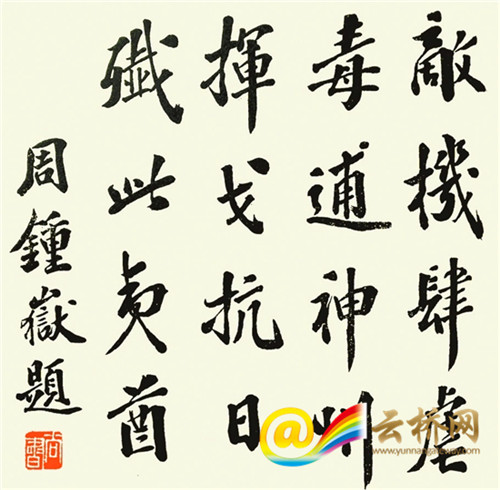 敵機肆虐
毒逋神州
揮戈抗日
殲此夷酋
周鍾嶽題
云桥网
www.yunnangateway.com